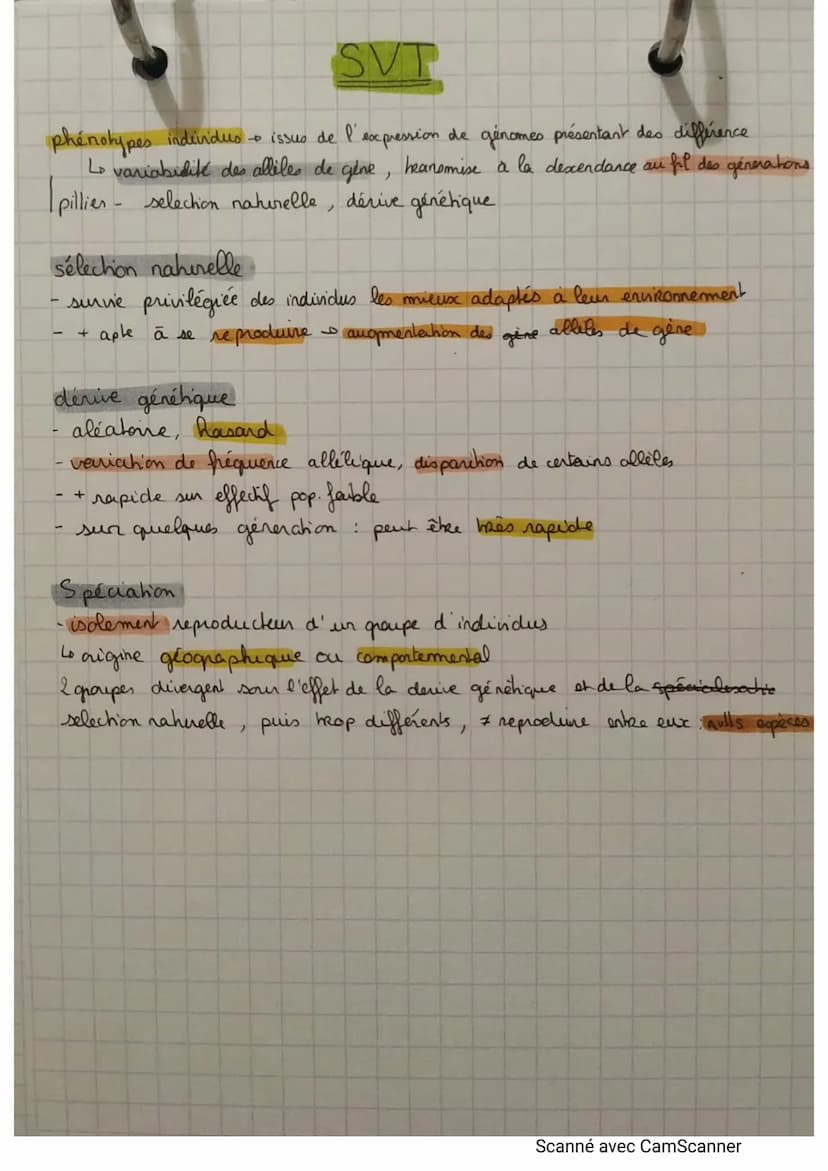 SVT
phénotypes individus → issus de l'expression de génomes présentant des différence
↳ variabilité des allèles de gène, transmise à la descendance au fil des générations
pillier - selection naturelle, dérive génétique
sélection naturelle
- survie privilégiée des individus les mieux adaptés à leur environnement
- + apte à se reproduire → augmentation des gène allèles de gène
dérive génétique
- aléatoire, hasard
- variation de fréquence allélique, disparition de certains allèles
- + rapide sur effectif pop. faible
- sur quelques géneration : peut être très rapide
Spéciation
- isolement reproducteur d'un groupe d'individus
↳ origine géographique ou comportemental
2 groupes divergent sour l'effet de la derive génétique et de la
selection naturelle, puis trop différents, ≠ reproduire entre eux : nvlls espèces
Scanné avec CamScanner